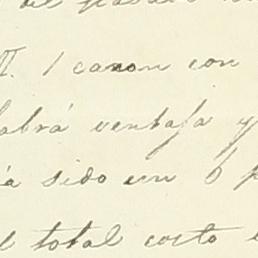 II. 1 canon con
abrá ventaja y
a sido un 6 p
l total costo